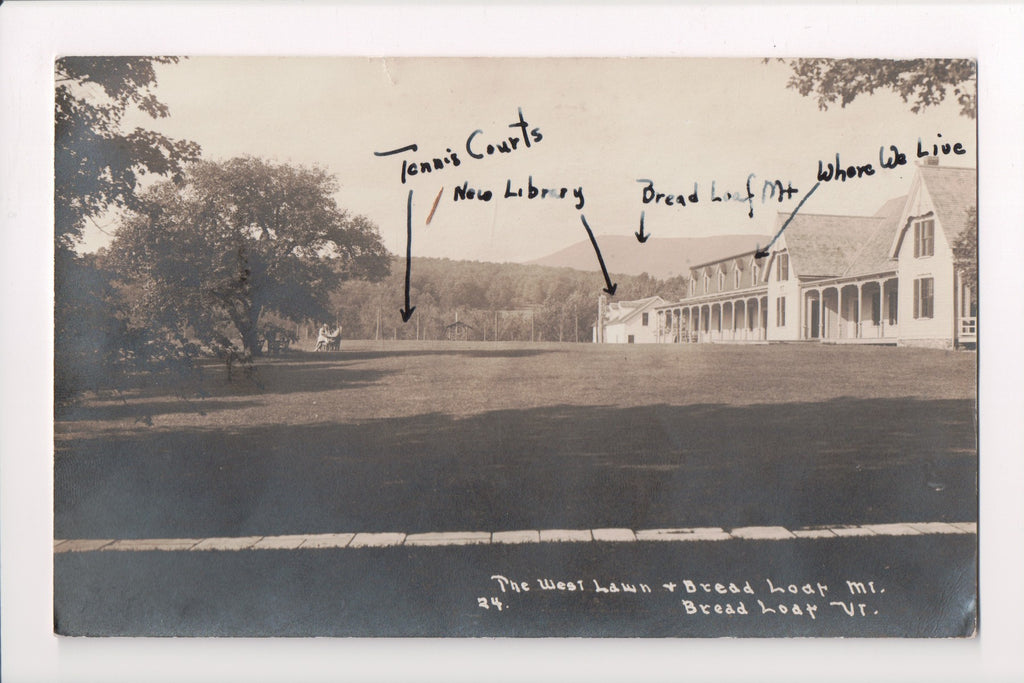 Tennis Courts
New Library
Bread Loaf Mt
Where We Live
The West Lawn + Bread Loaf Mt.
24. Bread Loaf Vt.